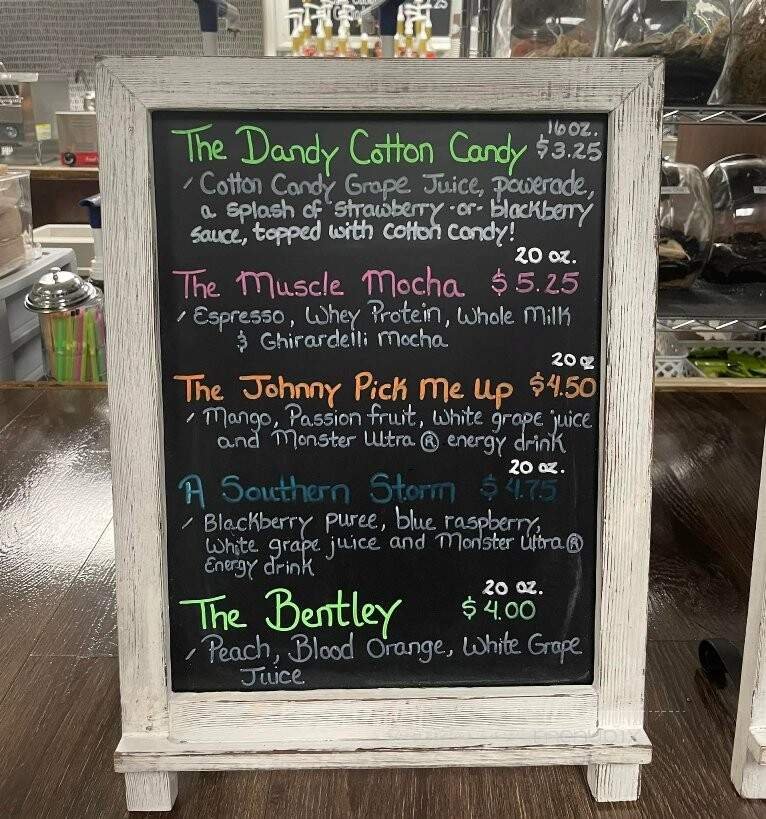 16 oz.
The Dandy Cotton Candy $3.25
Cotton Candy Grape Juice, powerade,
a splash of strawberry -or- blackberry
sauce, topped with cotton candy!
20 oz.
The Muscle Mocha $5.25
Espresso, Whey Protein, Whole Milk
& Ghirardelli Mocha
20 oz
The Johnny Pick Me Up $4.50
Mango, Passion fruit, White grape juice
and Monster Ultra ® energy drink
20 oz.
A Southern Storm $4.75
Blackberry puree, blue raspberry,
White grape juice and Monster Ultra ®
Energy drink
20 oz.
The Bentley $4.00
Peach, Blood Orange, White Grape
Juice